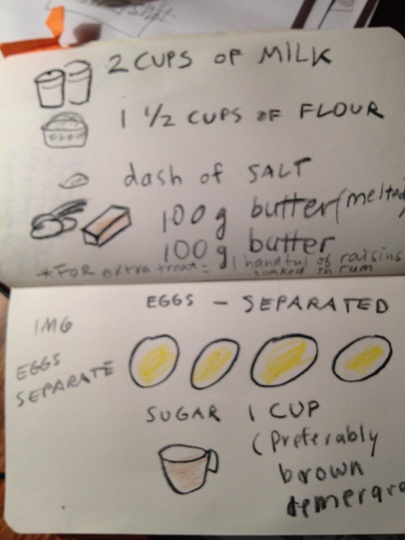 2 CUPS OF MILK
1 1/2 CUPS OF FLOUR
dash of SALT
100g butter (melted
100g butter
*FOR extra treat: 1 handful of raisins
soaked in rum
EGGS - SEPARATED
IMG
EGGS
SEPARATE
SUGAR 1 CUP
(Preferably
brown